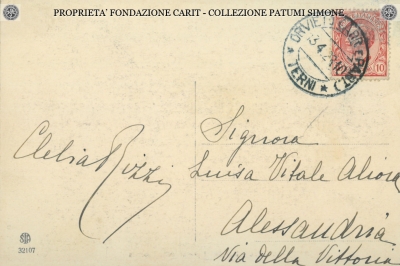 PROPRIETA' FONDAZIONE CARIT - COLLEZIONE PATUMI SIMONE
ORVIETO
TERNI
10
Clelia Rizzi
Signora
Luisa Vitale
Alessandria
Via della Vittoria
32107